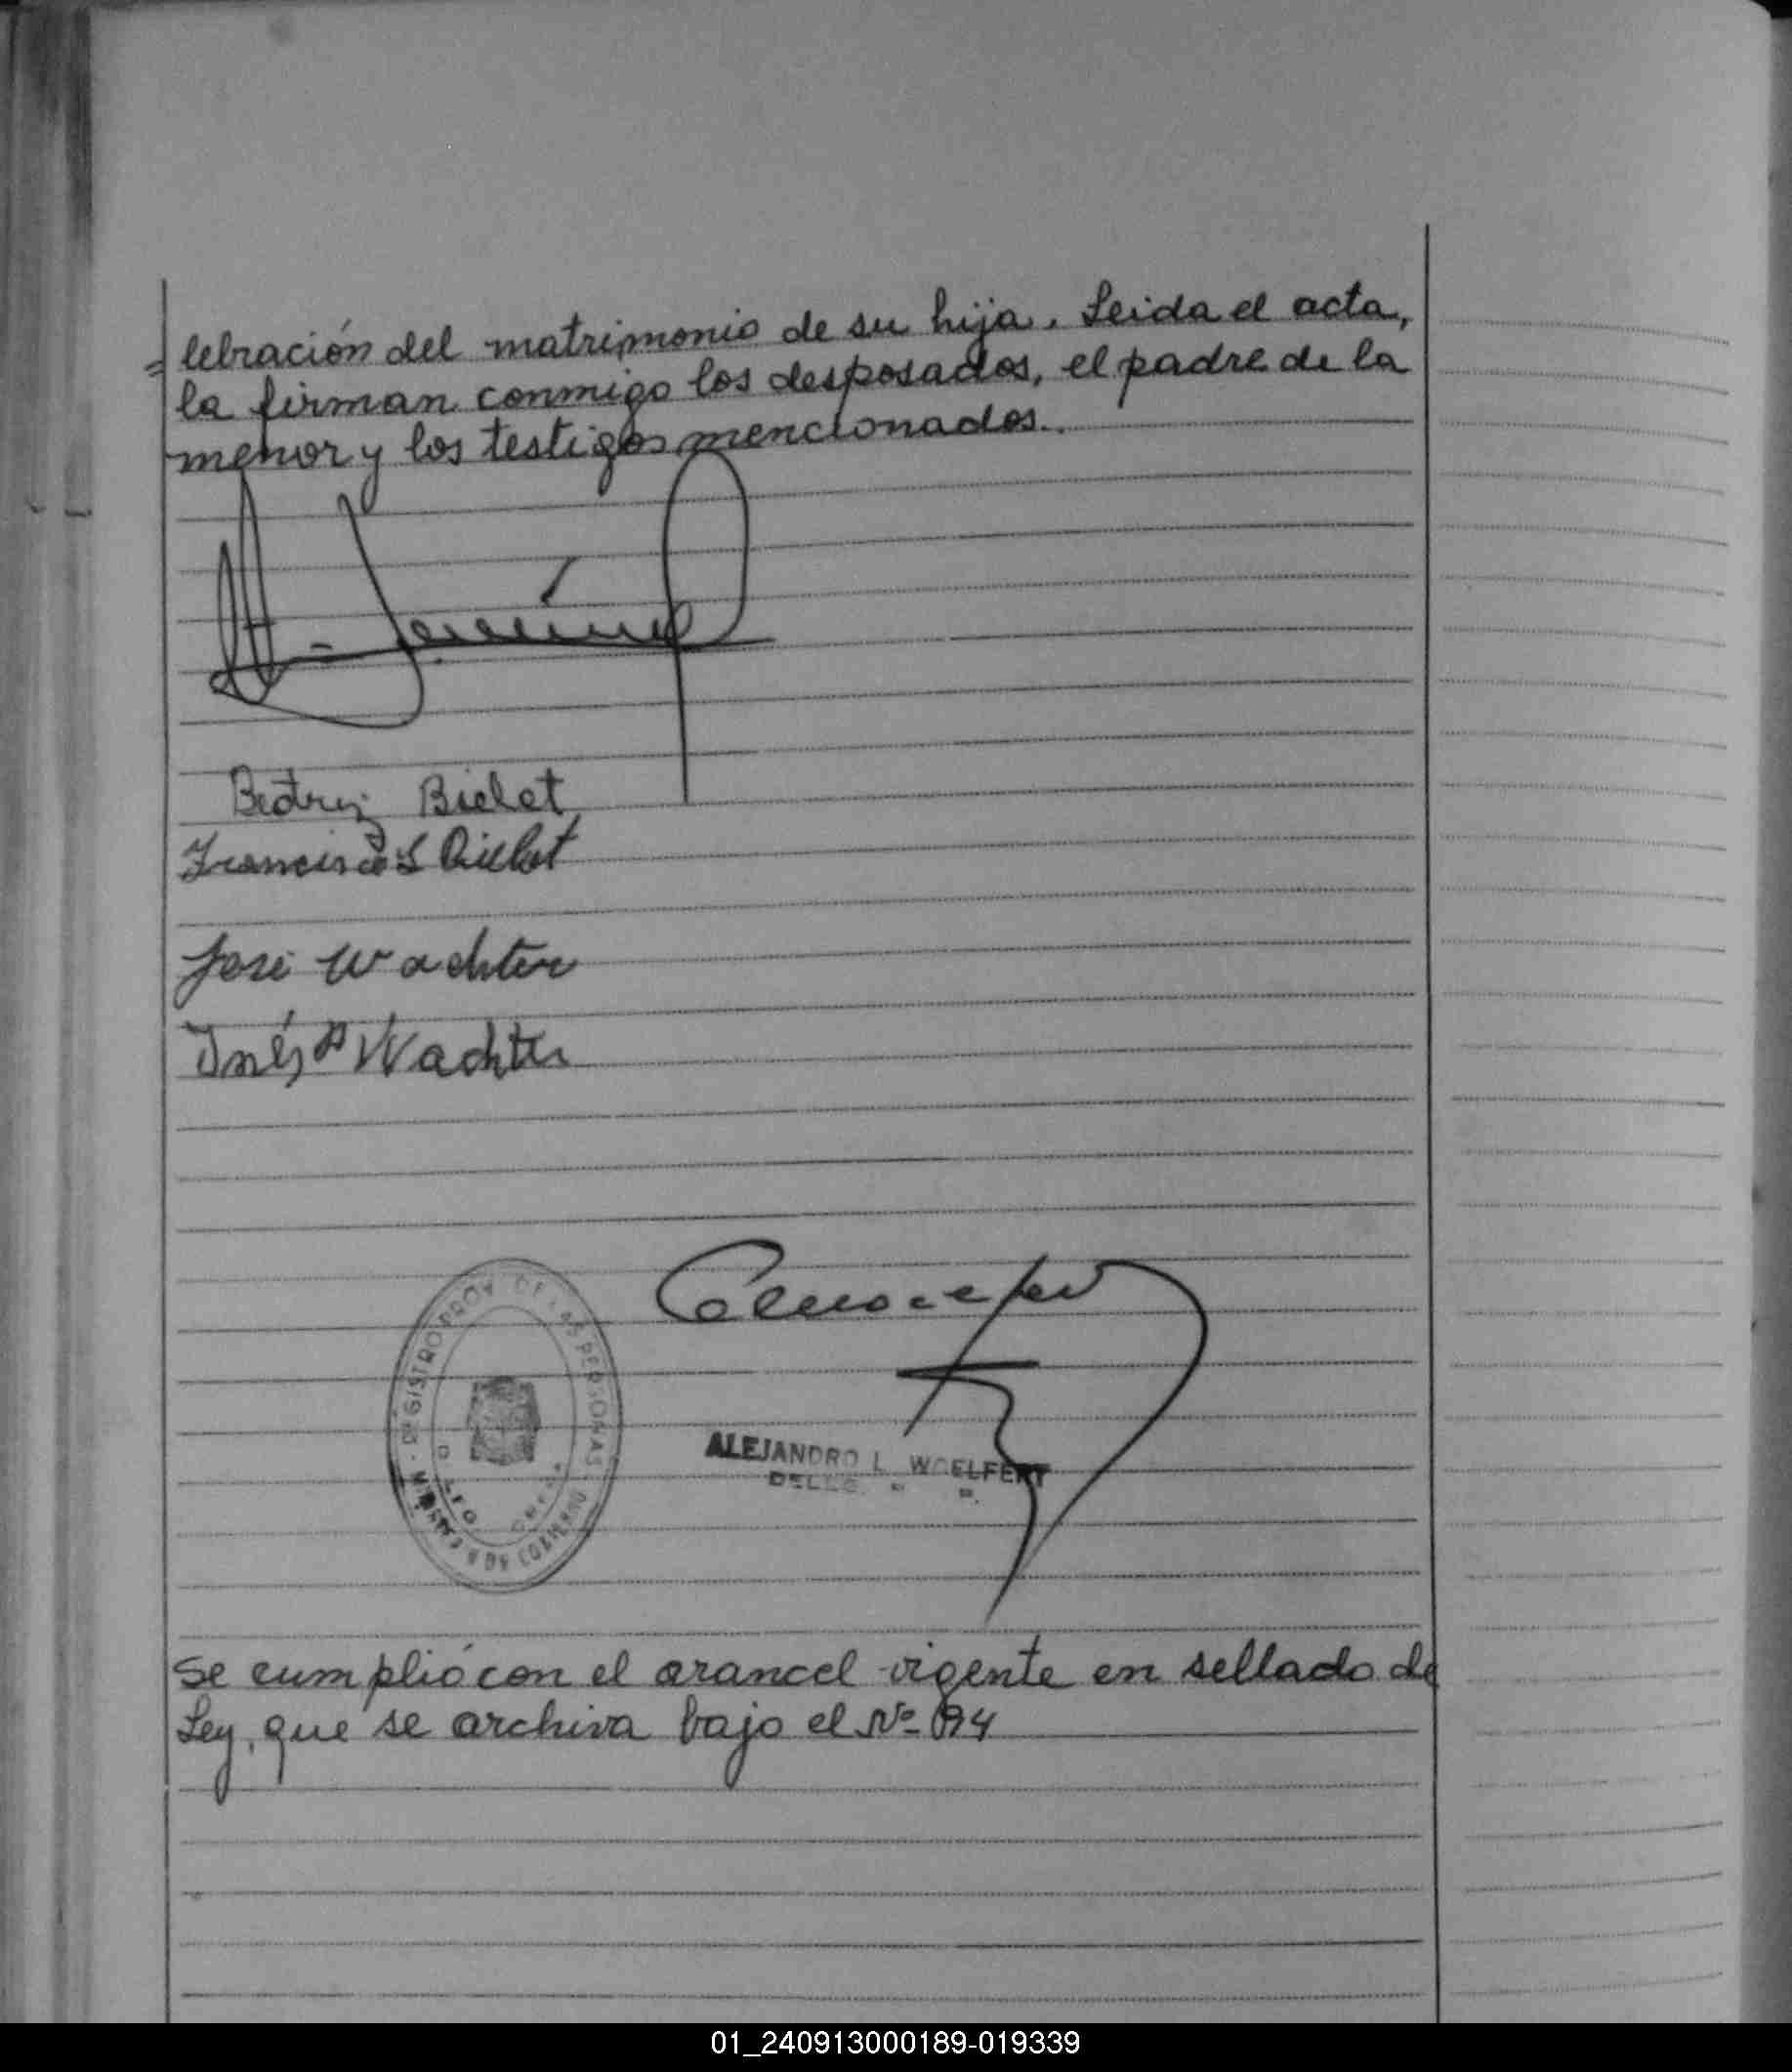 = lebración del matrimonio de su hija. Leida el acta,
la firman conmigo los desposados, el padre de la
menor y los testigos mencionados..
Beatriz Bielet
Francisco L Bielet
José Wachter
Inés Wachter
REGISTRO PROV. DE LAS PERSONAS
ALEJANDRO L. WOELFERT
Se cumplió con el arancel vigente en sellado de
Ley, que se archiva bajo el Nº 94
01_240913000189-019339